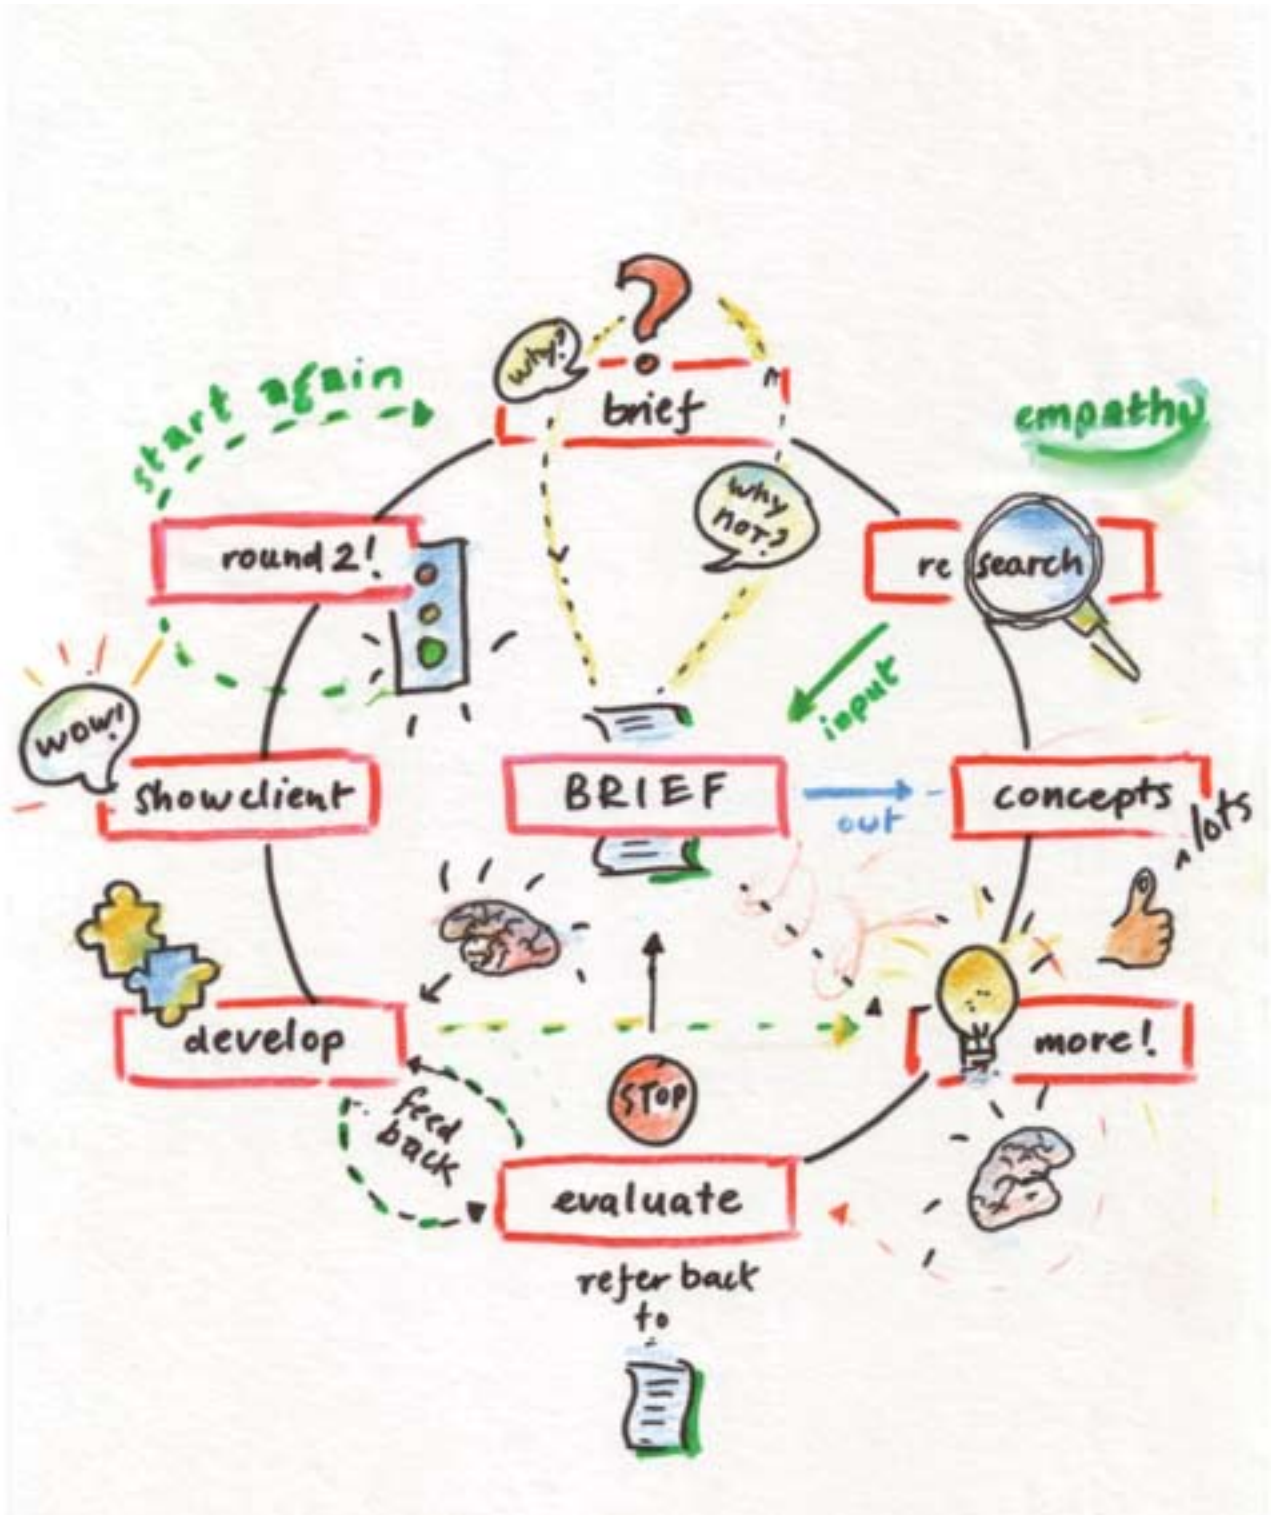 why?
brief
start again
empathy
why
not?
round 2!
re search
input
wow!
show client
BRIEF
out
concepts
lots
develop
more!
feed
back
STOP
evaluate
refer back
to